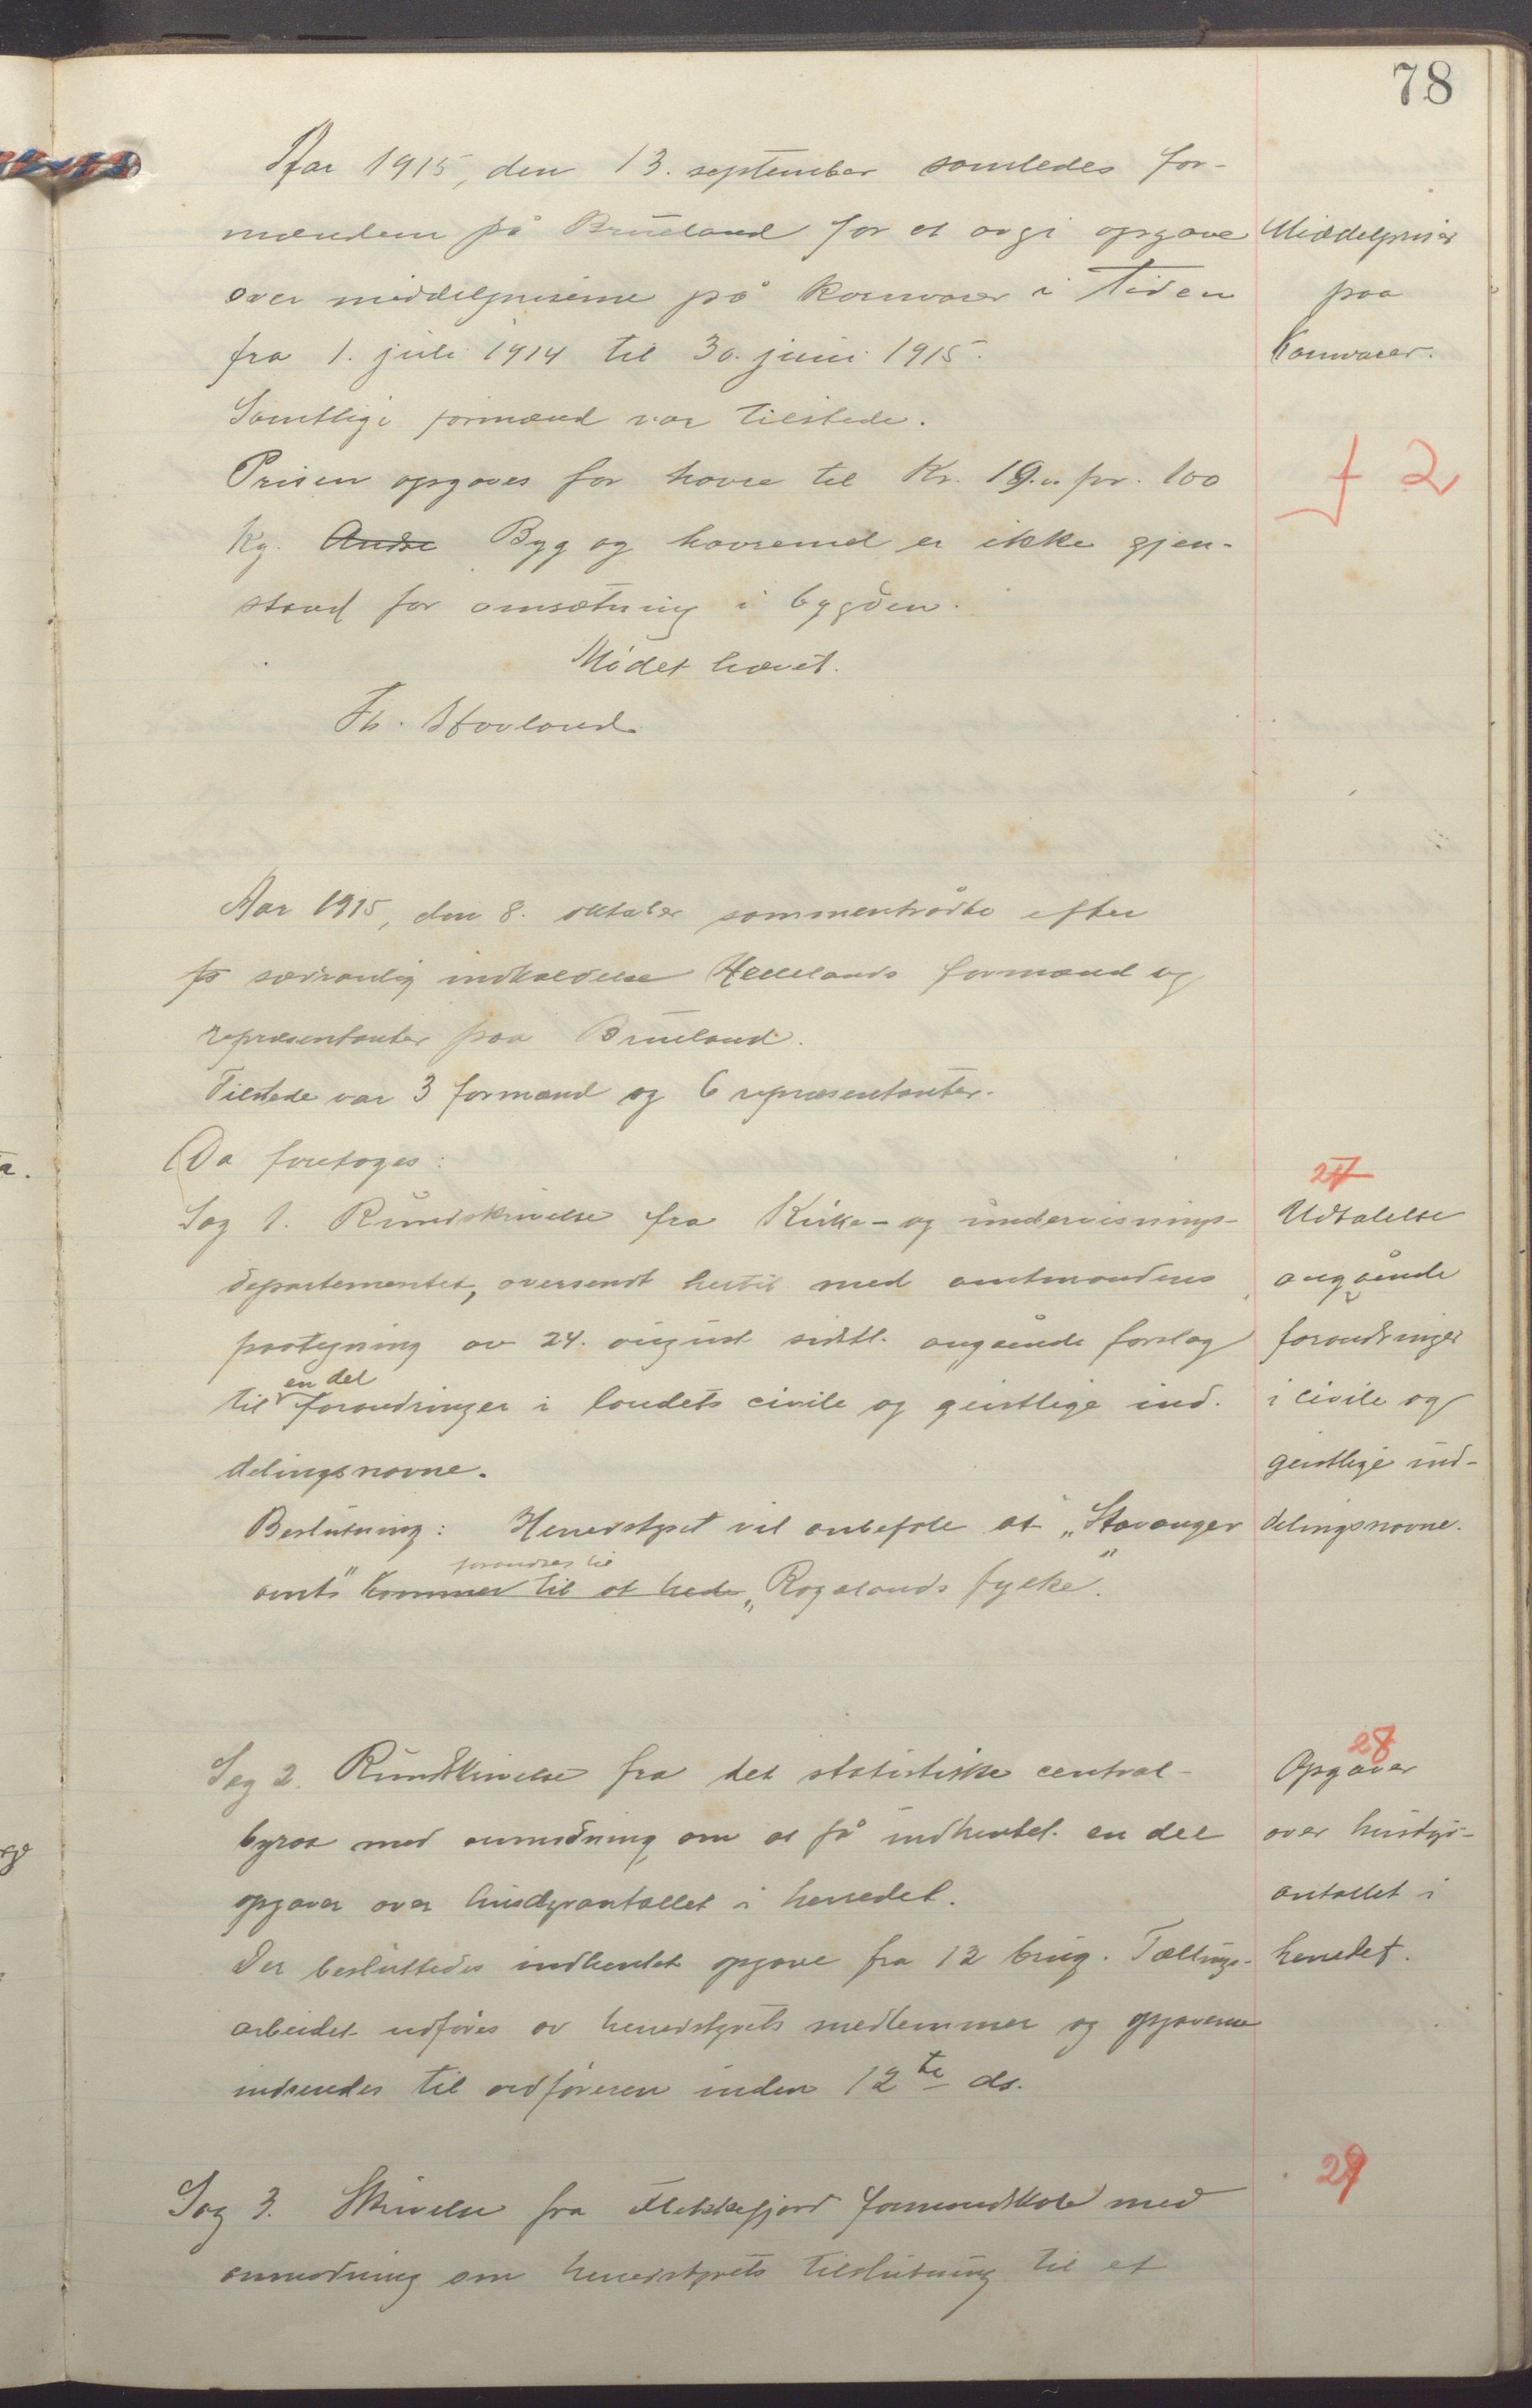 78
Aar 1915, den 13. september samledes for-
mændene på Brueland for at avgi opgave
over middelpriserne på kornvarer i tiden
fra 1. juli 1914 til 30. juni 1915.
Samtlige formænd var tilstede.
Prisen opgaves for havre til Kr. 19.00 pr. 100
kg. Andre Byg og havremel er ikke gjen-
stand for omsætning i bygden.
Mødet hævet.
Th. Stavland
Middelpriser
paa
Kornvarer.
f 2
Aar 1915, den 8. oktober sammentrådte efter
fo sædvanlig indkaldelse Hellelands formænd og
repræsentanter paa Brueland.
Tilstede var 3 formænd og 6 repræsentanter.
Da foretoges:
Sag 1. Rundskrivelse fra Kirke- og undervisnings-
departementet, oversendt hertil med amtmandens
paategning av 24. august sidstl. angående forslag
en del
til forandringer i landets civile og geistlige ind-
delingsnavne.
Beslutning: Herredstyret vil anbefale at „Stavanger
forandres til
amt" kommer til at hede „Rogalands fylke".
27
Udtalelse
angående
forandringer
i civile og
geistlige ind-
delingsnavne.
Sag 2. Rundskrivelse fra det statistiske central-
byraa med anmodning om at få indhentet en del
opgaver over husdyrantallet i herredet.
Der besluttedes indhentet opgave fra 12 brug. Tællings-
arbeidet utføres av herredstyrets medlemmer og opgaverne
indsendes til ordføreren inden 12te ds.
28
Opgaver
over husdyr-
antallet i
herredet.
Sag 3. Skrivelse fra Flekkefjord formandskab med
anmodning om herredstyrets tilslutning til et
29